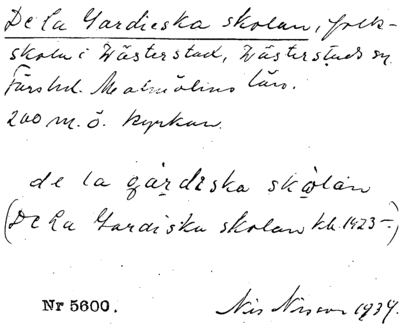 De la Gardieska skolan, folk-
skola i Västerstad, Västerstads sn
Färs hd. Malmöhus län.
200 m. ö. kyrkan.
de la gàrdiska skọlan
(De La Gardiska skolan kb. 1423-)
Nr 5600.
1934.